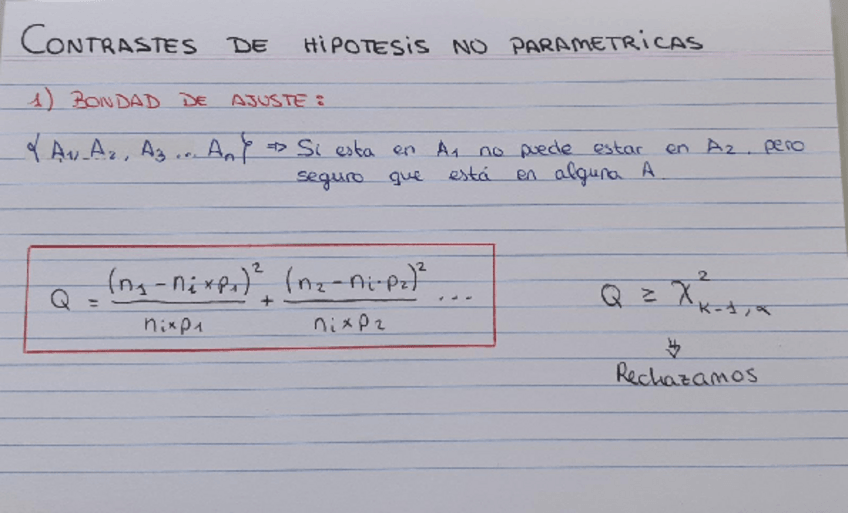 CONTRASTES DE HIPOTESIS NO PARAMETRICAS
1) BONDAD DE AJUSTE:
{A₁, A₂, A₃ ... Aₙ} ⇒ Si esta en A₁ no puede estar en A₂. pero
seguro que está en alguna A.
Q = (n₁ - nᵢ × p₁)² / nᵢ×p₁ + (n₂ - nᵢ·p₂)² / nᵢ × p₂ ...
Q ≥ χ²ₖ₋₁,α
⇓
Rechazamos